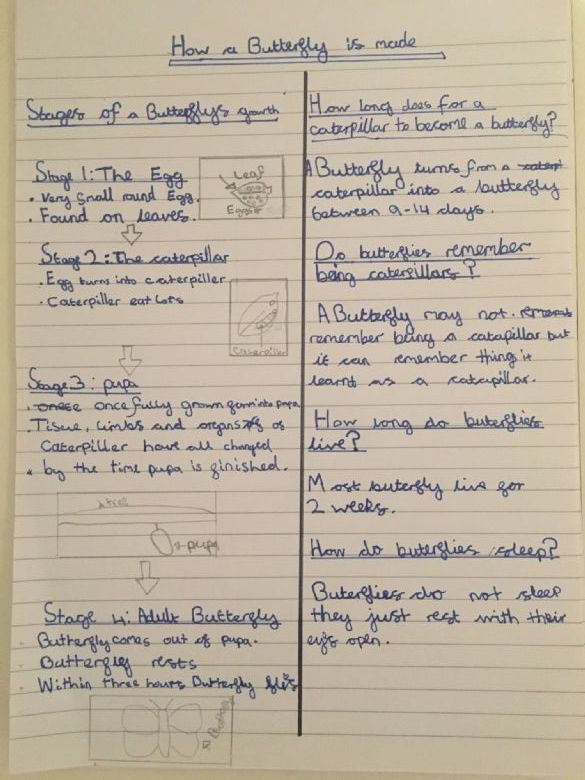 How a Butterfly is made
Stages of a Butterflys growth
Stage 1: The Egg
• Very small round Egg.
• Found on leaves.
Leaf
Stage 2: The caterpillar
• Egg turns into caterpiller
• Caterpiller eat lots
Caterpiller
Stage 3: pupa
once fully grown turn into pupa
• Tissue, limbs and organs of
Caterpiller have all changed
• by the time pupa is finished.
a tree
pupa
Stage 4: Adult Butterfly
- Butterfly comes out of pupa.
- Butterfly rests
- Within three hours Butterfly flies
Butterfly
How long does for a
caterpillar to become a butterfly?
A Butterfly turns from a
caterpillar into a butterfly
between 9-14 days.
Do butterflies remember
being caterpillars?
A Butterfly may not.
remember being a catapillar but
it can remember things it
learnt as a catapillar.
How long do buterflies
live?
Most buterfly live for
2 weeks.
How do butterflies sleep?
Buterflies do not sleep
they just rest with their
eys open.